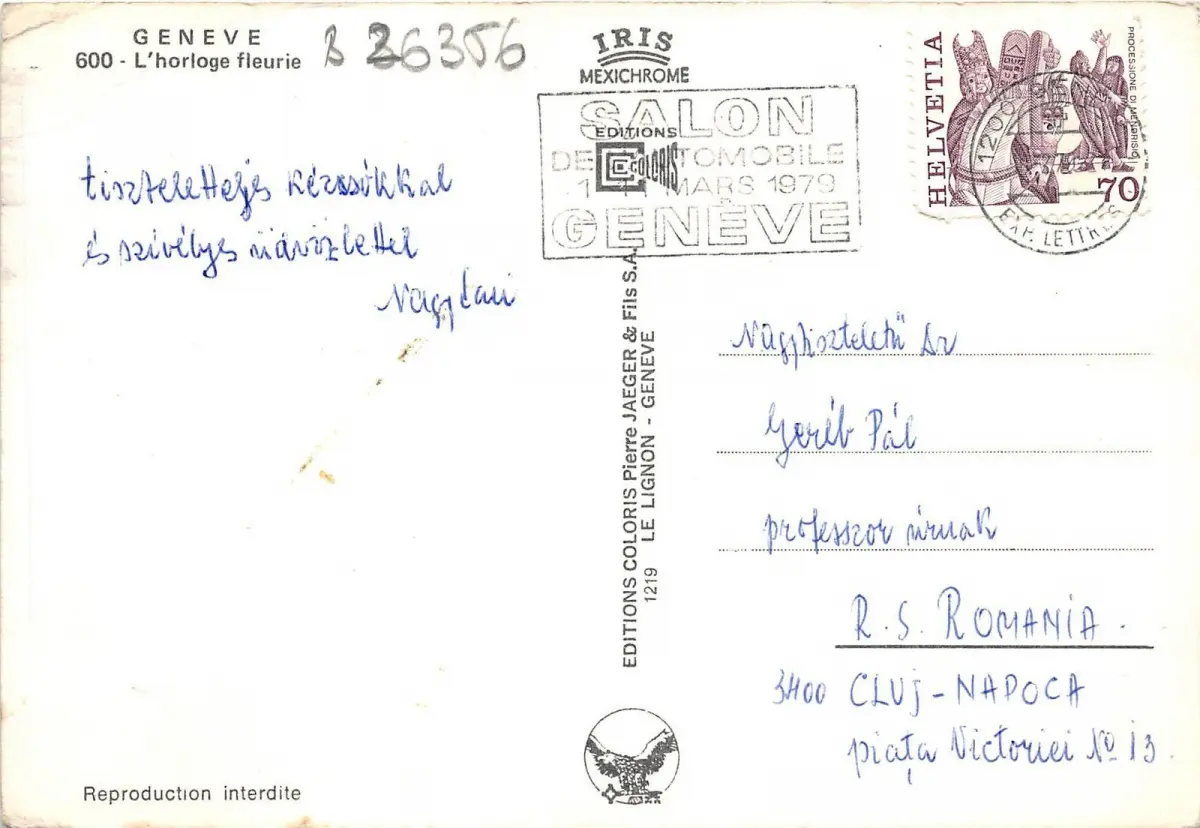 GENEVE
600 - L'horloge fleurie
B 36356
IRIS
MEXICHROME
SALON
EDITIONS
COLORIS
MARS 1979
GENÈVE
HELVETIA
PROCESSIONE DI MENDRISIO
70
1200
EXP. LETTRES
tiszteletteljes kézcsókkal
és szívélyes üdvözlettel
Nagy
Nagytiszteletű Dr
Geréb Pál
professzor úrnak
R. S. ROMANIA.
3400 CLUJ-NAPOCA
piața Victoriei No 13.
EDITIONS COLORIS Pierre JAEGER & Fils S.A.
1219 LE LIGNON - GENEVE
Reproduction interdite